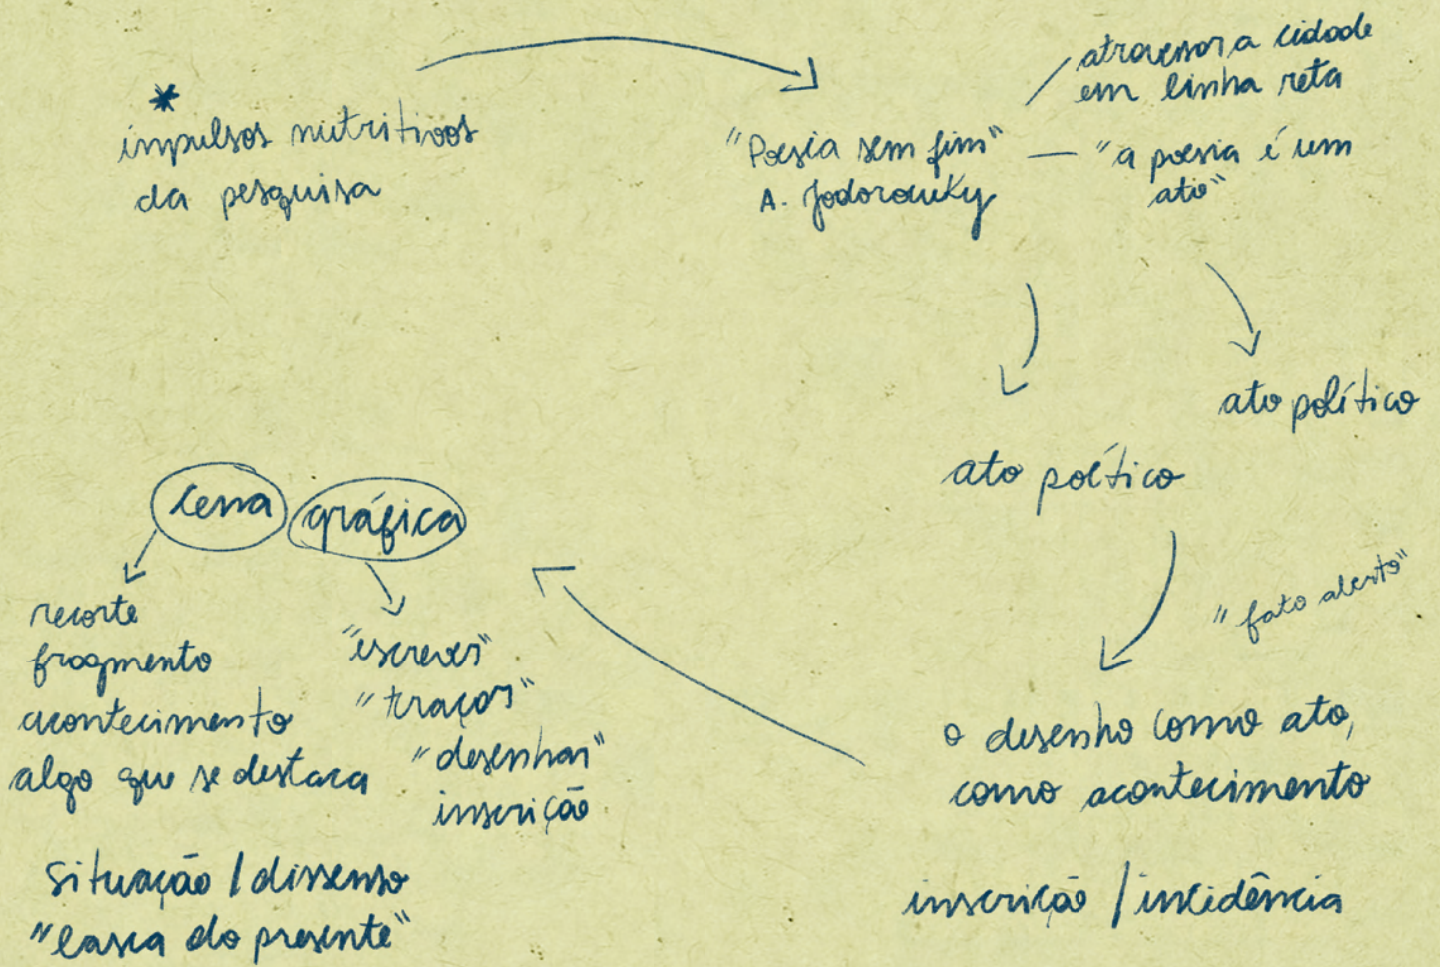 * impulsos nutritivos
da pesquisa
"Poesia sem fim"
A. Jodorowsky
atravessar a cidade
em linha reta
"a poesia é um
ato"
ato político
ato poético
"fato aberto"
o desenho como ato,
como acontecimento
inscrição / incidência
cena gráfica
recorte
fragmento
acontecimento
algo que se destaca
situação / dissenso
"lasca do presente"
"escrever"
"traçar"
"desenhar"
inscrição